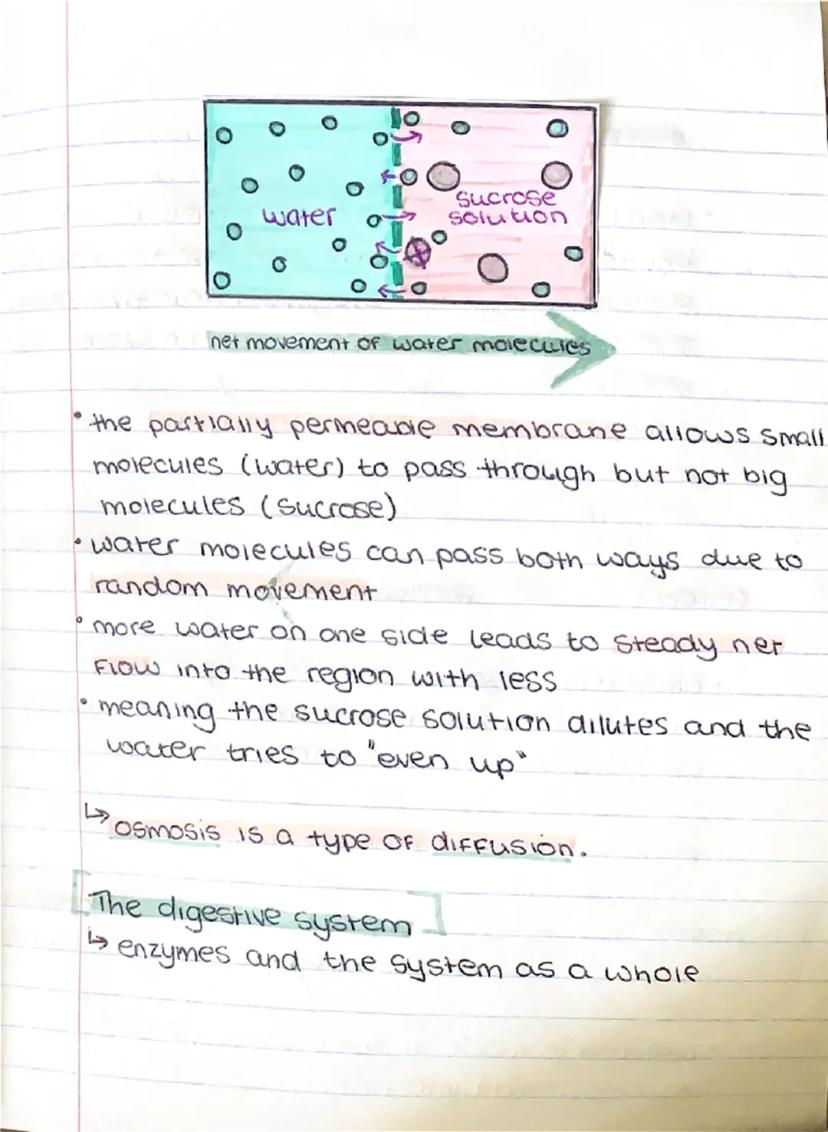 water
sucrose
solution
net movement of water molecules
• the partially permeable membrane allows small
molecules (water) to pass through but not big
molecules (sucrose)
• water molecules can pass both ways due to
random movement
• more water on one side leads to steady net
flow into the region with less
• meaning the sucrose solution dilutes and the
water tries to "even up"
↳ osmosis is a type of diffusion.
[The digestive system]
↳ enzymes and the system as a whole